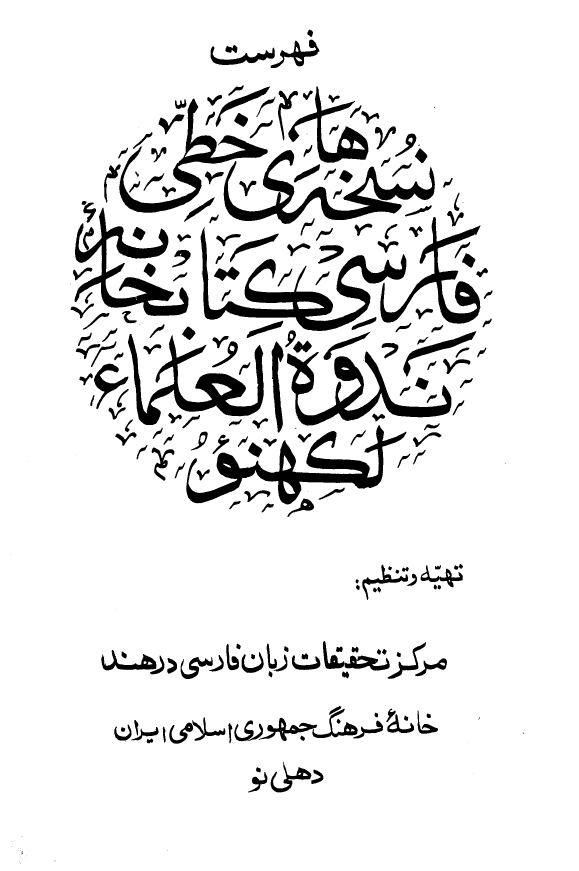 فهرست
نسخه‌های خطی
فارسی کتابخانهٔ
ندوة العلماء
لکهنؤ
تهیّه و تنظیم:
مرکز تحقیقات زبان فارسی در هند
خانهٔ فرهنگ جمهوری اسلامی ایران
دهلی نو